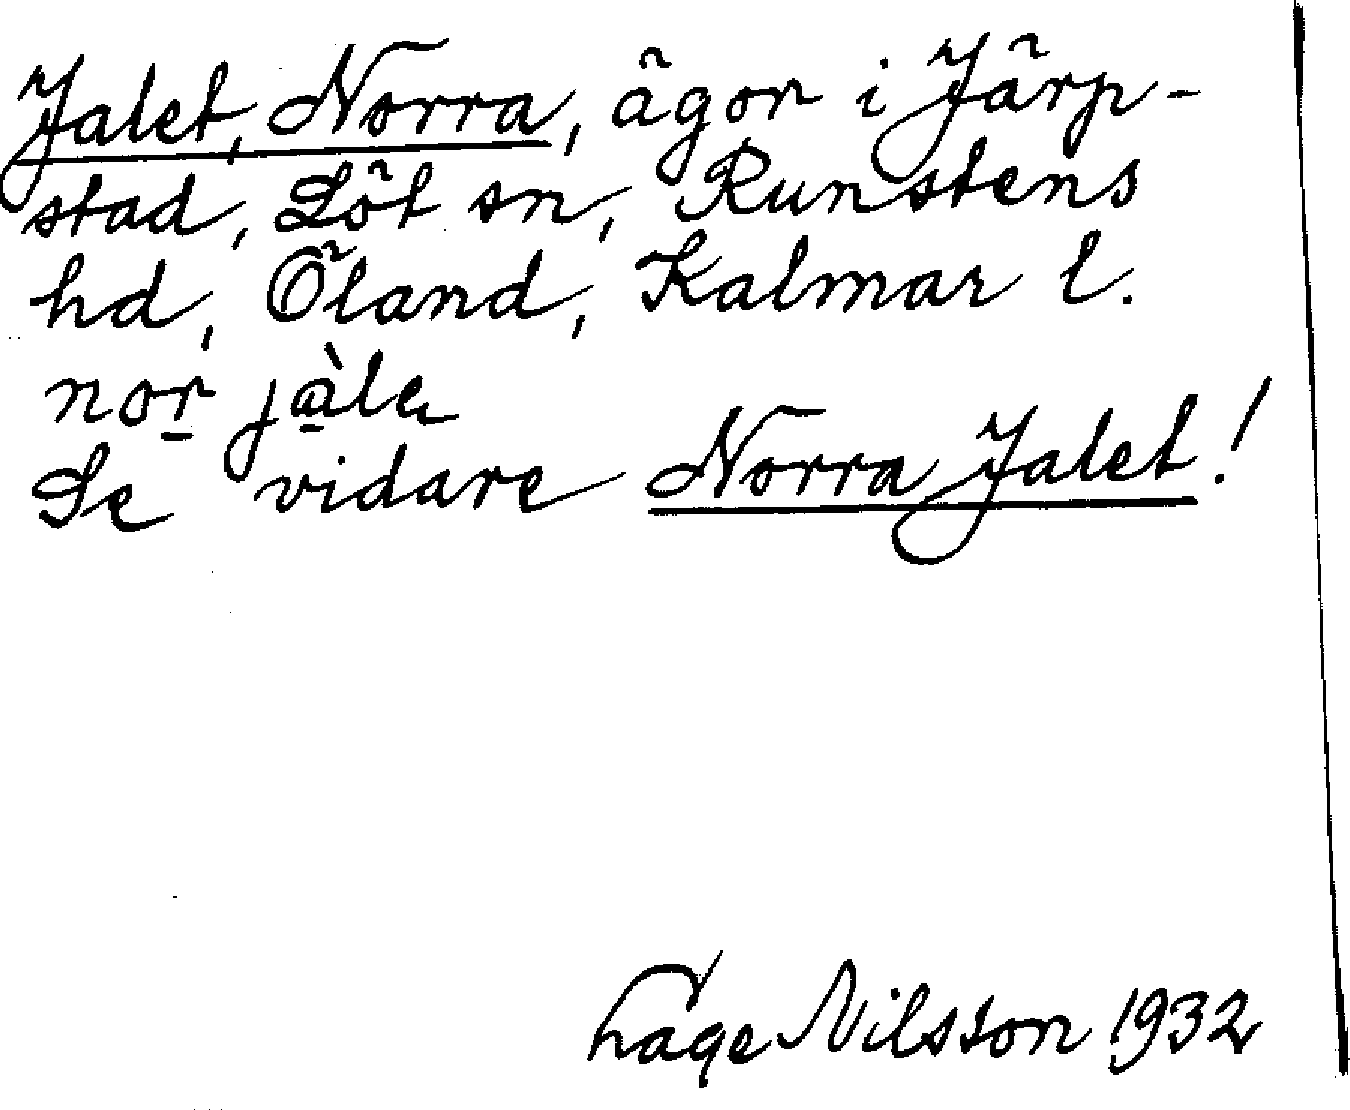 Jalet, Norra, ägor i Järp-
stad, Löt sn, Runstens
hd, Öland, Kalmar l.
nor̲ jà̲le
Se vidare Norra Jalet!
Tage Nilsson 1932